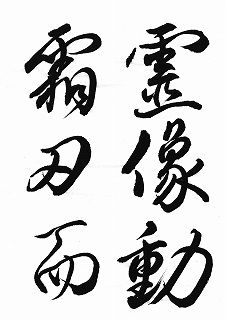 靈像動
霜刃而